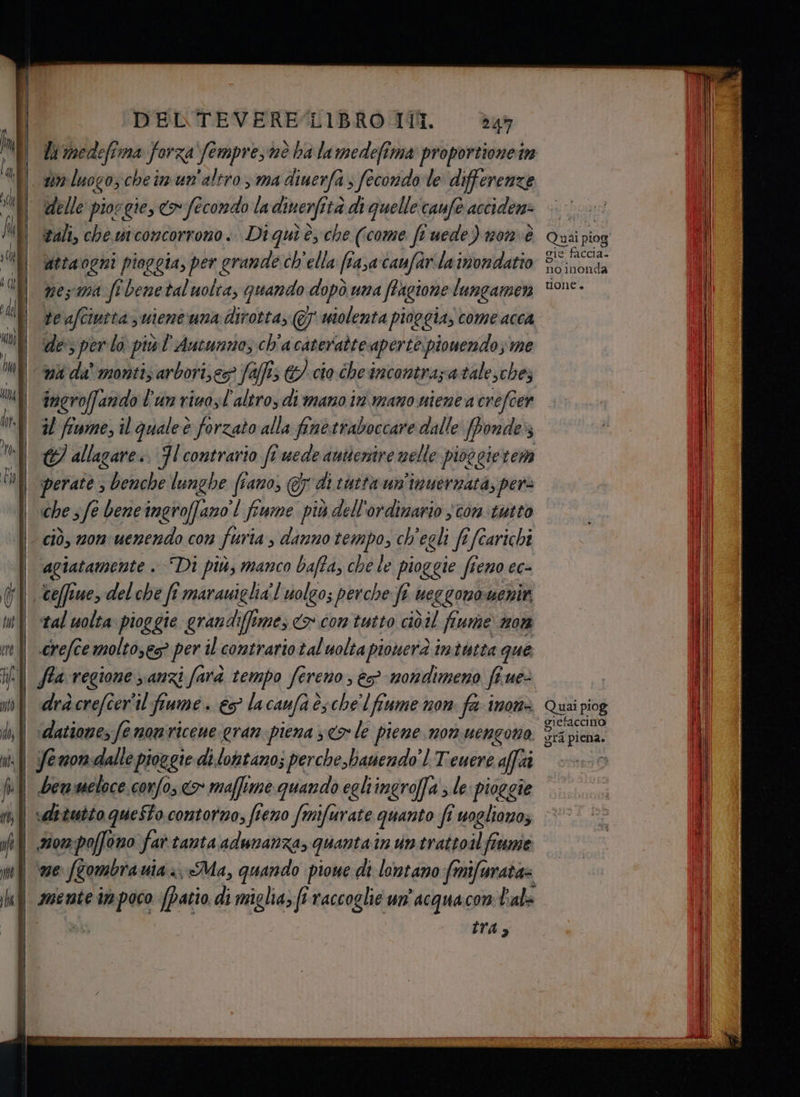 DEL TEVERE LIBRO III. 247
la medesima forza sempre, nè ha la medesima proportione in
un luogo, che in un'altro, ma diuersa, secondo le differenze
delle pioggie, & secondo la diuersità di quelle cause acciden=
tali, che ui concorrono. Di qui è, che (come si uede) non è
atta ogni pioggia, per grande ch'ella sia, a causar la inondatio
ne, ma si bene tal uolta, quando dopò una stagione lungamen
te asciutta, uiene una dirotta, & uiolenta pioggia, come acca
de, per lo più l'Autunno, ch'a cateratte aperte piouendo, me
na da' monti, arbori, & sassi, & cio che incontra, a tale, che,
ingrossando l'un riuo, l'altro, di mano in mano uiene a crescer
il fiume, il quale è forzato alla fine traboccare dalle sponde,
& allagare. Il contrario si uede auuenire nelle pioggie tem
perate, benche lunghe siano, & di tutta un'inuernata, per=
che, se bene ingrossano'l fiume più dell'ordinario, con tutto
ciò, non uenendo con furia, danno tempo, ch'egli si scarichi
agiatamente. Di più, manco basta, che le pioggie sieno ec=
cessiue, del che si marauiglia'l uolgo; perche si ueggono uenir
tal uolta pioggie grandissime, & con tutto ciò il fiume non
cresce molto, & per il contrario tal uolta piouerà in tutta que
sta regione, anzi sarà tempo sereno, & nondimeno si ue=
drà crescer'il fiume. & la causa è, che'l fiume non fa inon=
datione, se non riceue gran piena, & le piene non uengono
se non dalle pioggie di lontano; perche, hauendo'l Teuere assai
ben ueloce corso, & massime quando egli ingrossa, le pioggie
di tutto questo contorno, sieno smisurate quanto si uogliono,
non possono far tanta adunanza, quanta in un tratto il fiume
ne sgombra uia. Ma, quando pioue di lontano smisurata=
mente in poco spatio di miglia, si raccoglie un'acqua con l'al=
tra,
Quai piog
gie faccia=
no inonda
tione.
Quai piog
gie faccino
grā piena.